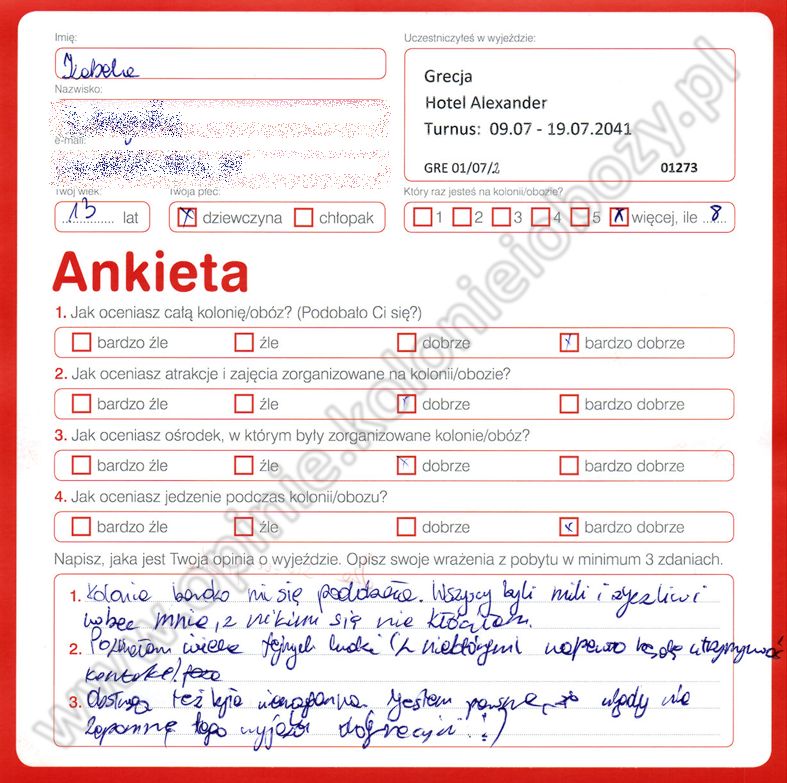 Imię:
Izabela
Nazwisko:
e-mail:
Twój wiek:
13 lat
Twoja płeć:
dziewczyna chłopak
Uczestniczyłeś w wyjeździe:
Grecja
Hotel Alexander
Turnus: 09.07 - 19.07.2041
GRE 01/07/2 01273
Który raz jesteś na kolonii/obozie?
1 2 3 4 5 więcej, ile 8
Ankieta
1. Jak oceniasz całą kolonię/obóz? (Podobało Ci się?)
bardzo źle źle dobrze bardzo dobrze
2. Jak oceniasz atrakcje i zajęcia zorganizowane na kolonii/obozie?
bardzo źle źle dobrze bardzo dobrze
3. Jak oceniasz ośrodek, w którym były zorganizowane kolonie/obóz?
bardzo źle źle dobrze bardzo dobrze
4. Jak oceniasz jedzenie podczas kolonii/obozu?
bardzo źle źle dobrze bardzo dobrze
Napisz, jaka jest Twoja opinia o wyjeździe. Opisz swoje wrażenia z pobytu w minimum 3 zdaniach.
1. Kolonia bardzo mi się podobała. Wszyscy byli mili i życzliwi
wobec mnie, z nikim się nie kłóciłam.
2. Poznałam wiele fajnych ludzi (z niektórymi napewno będę utrzymywać
kontakt)
3. Obsługa też była nienaganna. Jestem pewna, że nigdy nie
zapomnę tego wyjazdu do Grecji! :)
www.opinie.kolonieiobozy.pl